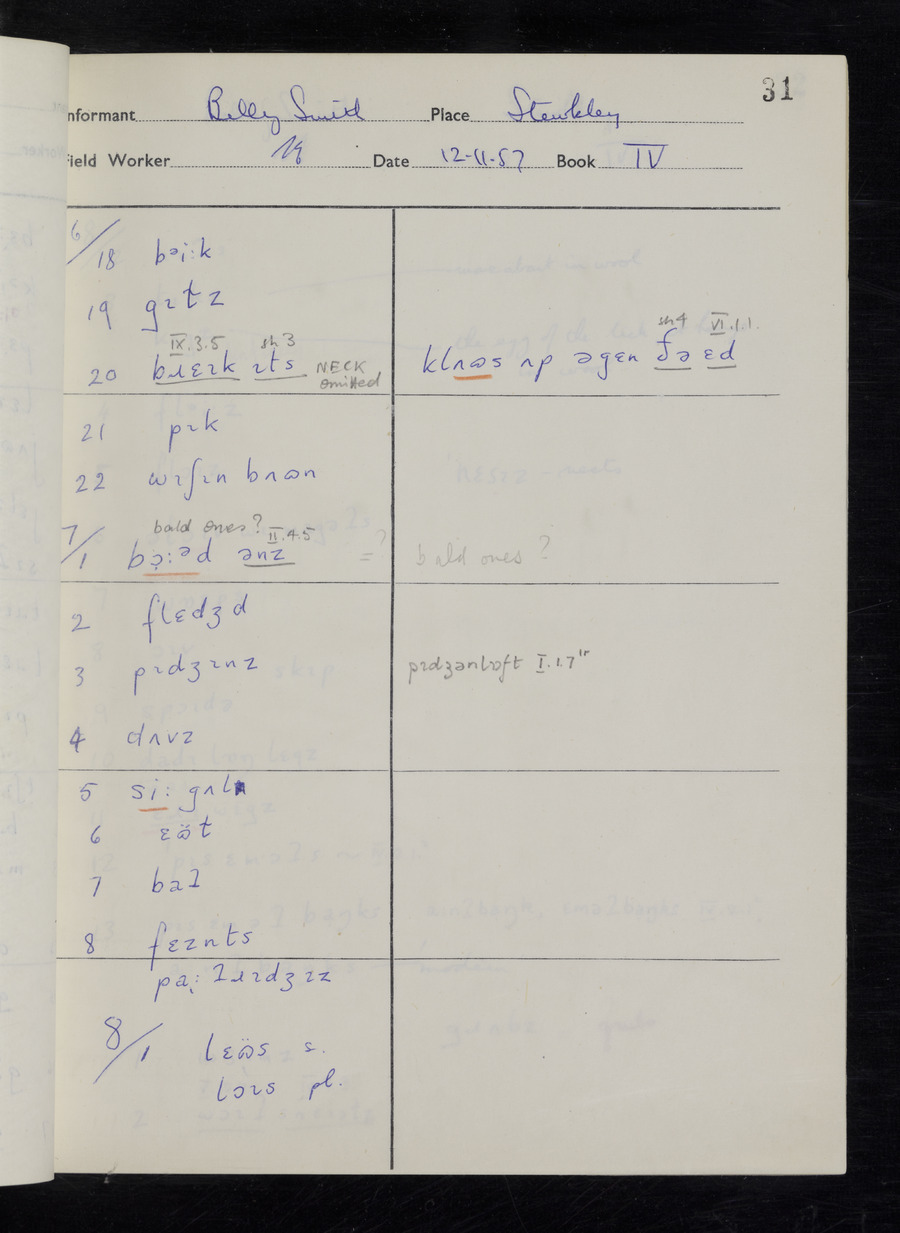 31
nformant Billy Smith Place Stewkley
ield Worker Date 12-11-57 Book IV
6/18 bəi:k
19 gɪtz
IX.3.5 sh 3 sh 4 VI.1.1.
20 bɹɛɪk ɪts NECK omitted klʌɷs ʌp əgen ðə ɛd
21 pɪk
22 wɪʃɪn bʌɷn
bald ones? II.4.5
7/1 bɔ̣:əd ənz = ? bald ones?
2 flɛdʒd
3 pɪdʒɪnz pɪdʒənlɒft I.1.7
4 dʌvz
5 si: gʌl
6 ɛɷ̈t
7 baʔ
8 fɛznts
pa̜: ʔɹɪdʒɪz
8/1 lɛɷ̈s s.
lɔɪs pl.